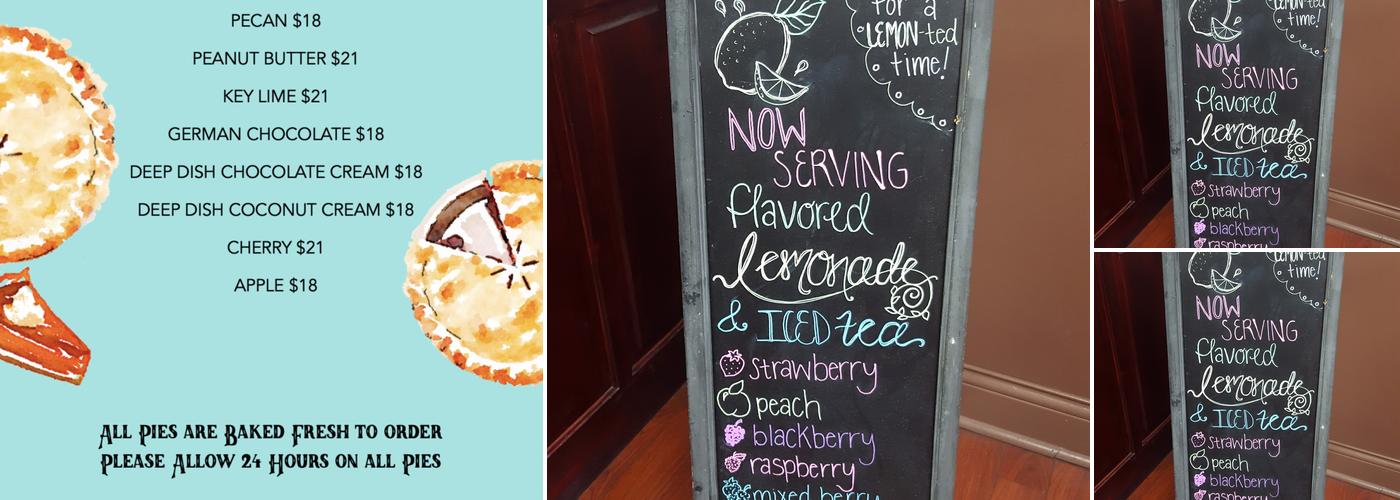 PECAN $18
PEANUT BUTTER $21
KEY LIME $21
GERMAN CHOCOLATE $18
DEEP DISH CHOCOLATE CREAM $18
DEEP DISH COCONUT CREAM $18
CHERRY $21
APPLE $18
All Pies are Baked Fresh to order
Please Allow 24 Hours on all Pies
for a
LEMON-ted
time!
NOW
SERVING
flavored
lemonade
& ICED tea
strawberry
peach
blackberry
raspberry
mixed berry
LEMON-ted
time!
NOW
SERVING
flavored
lemonade
& ICED tea
strawberry
peach
blackberry
raspberry
LEMON-ted
time!
NOW
SERVING
flavored
lemonade
& ICED tea
strawberry
peach
blackberry
raspberry